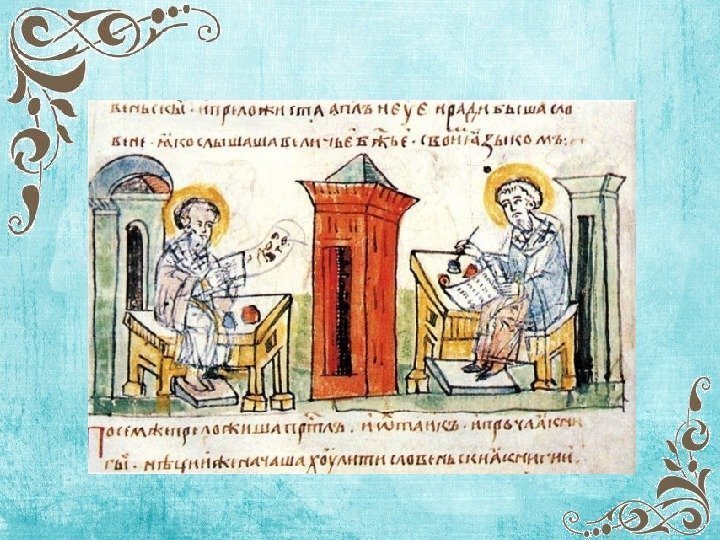 веньскы · и преложиста ап҃лъ и еуе и ради быша сло
вене · ꙗко слышаша величье бж҃ье · свои ꙗзыкомъ :
Посемже преложиша · и ѡтаикъ · и прочаꙗ кни
гы · нѣции же начаша хоулити словеньскиꙗ